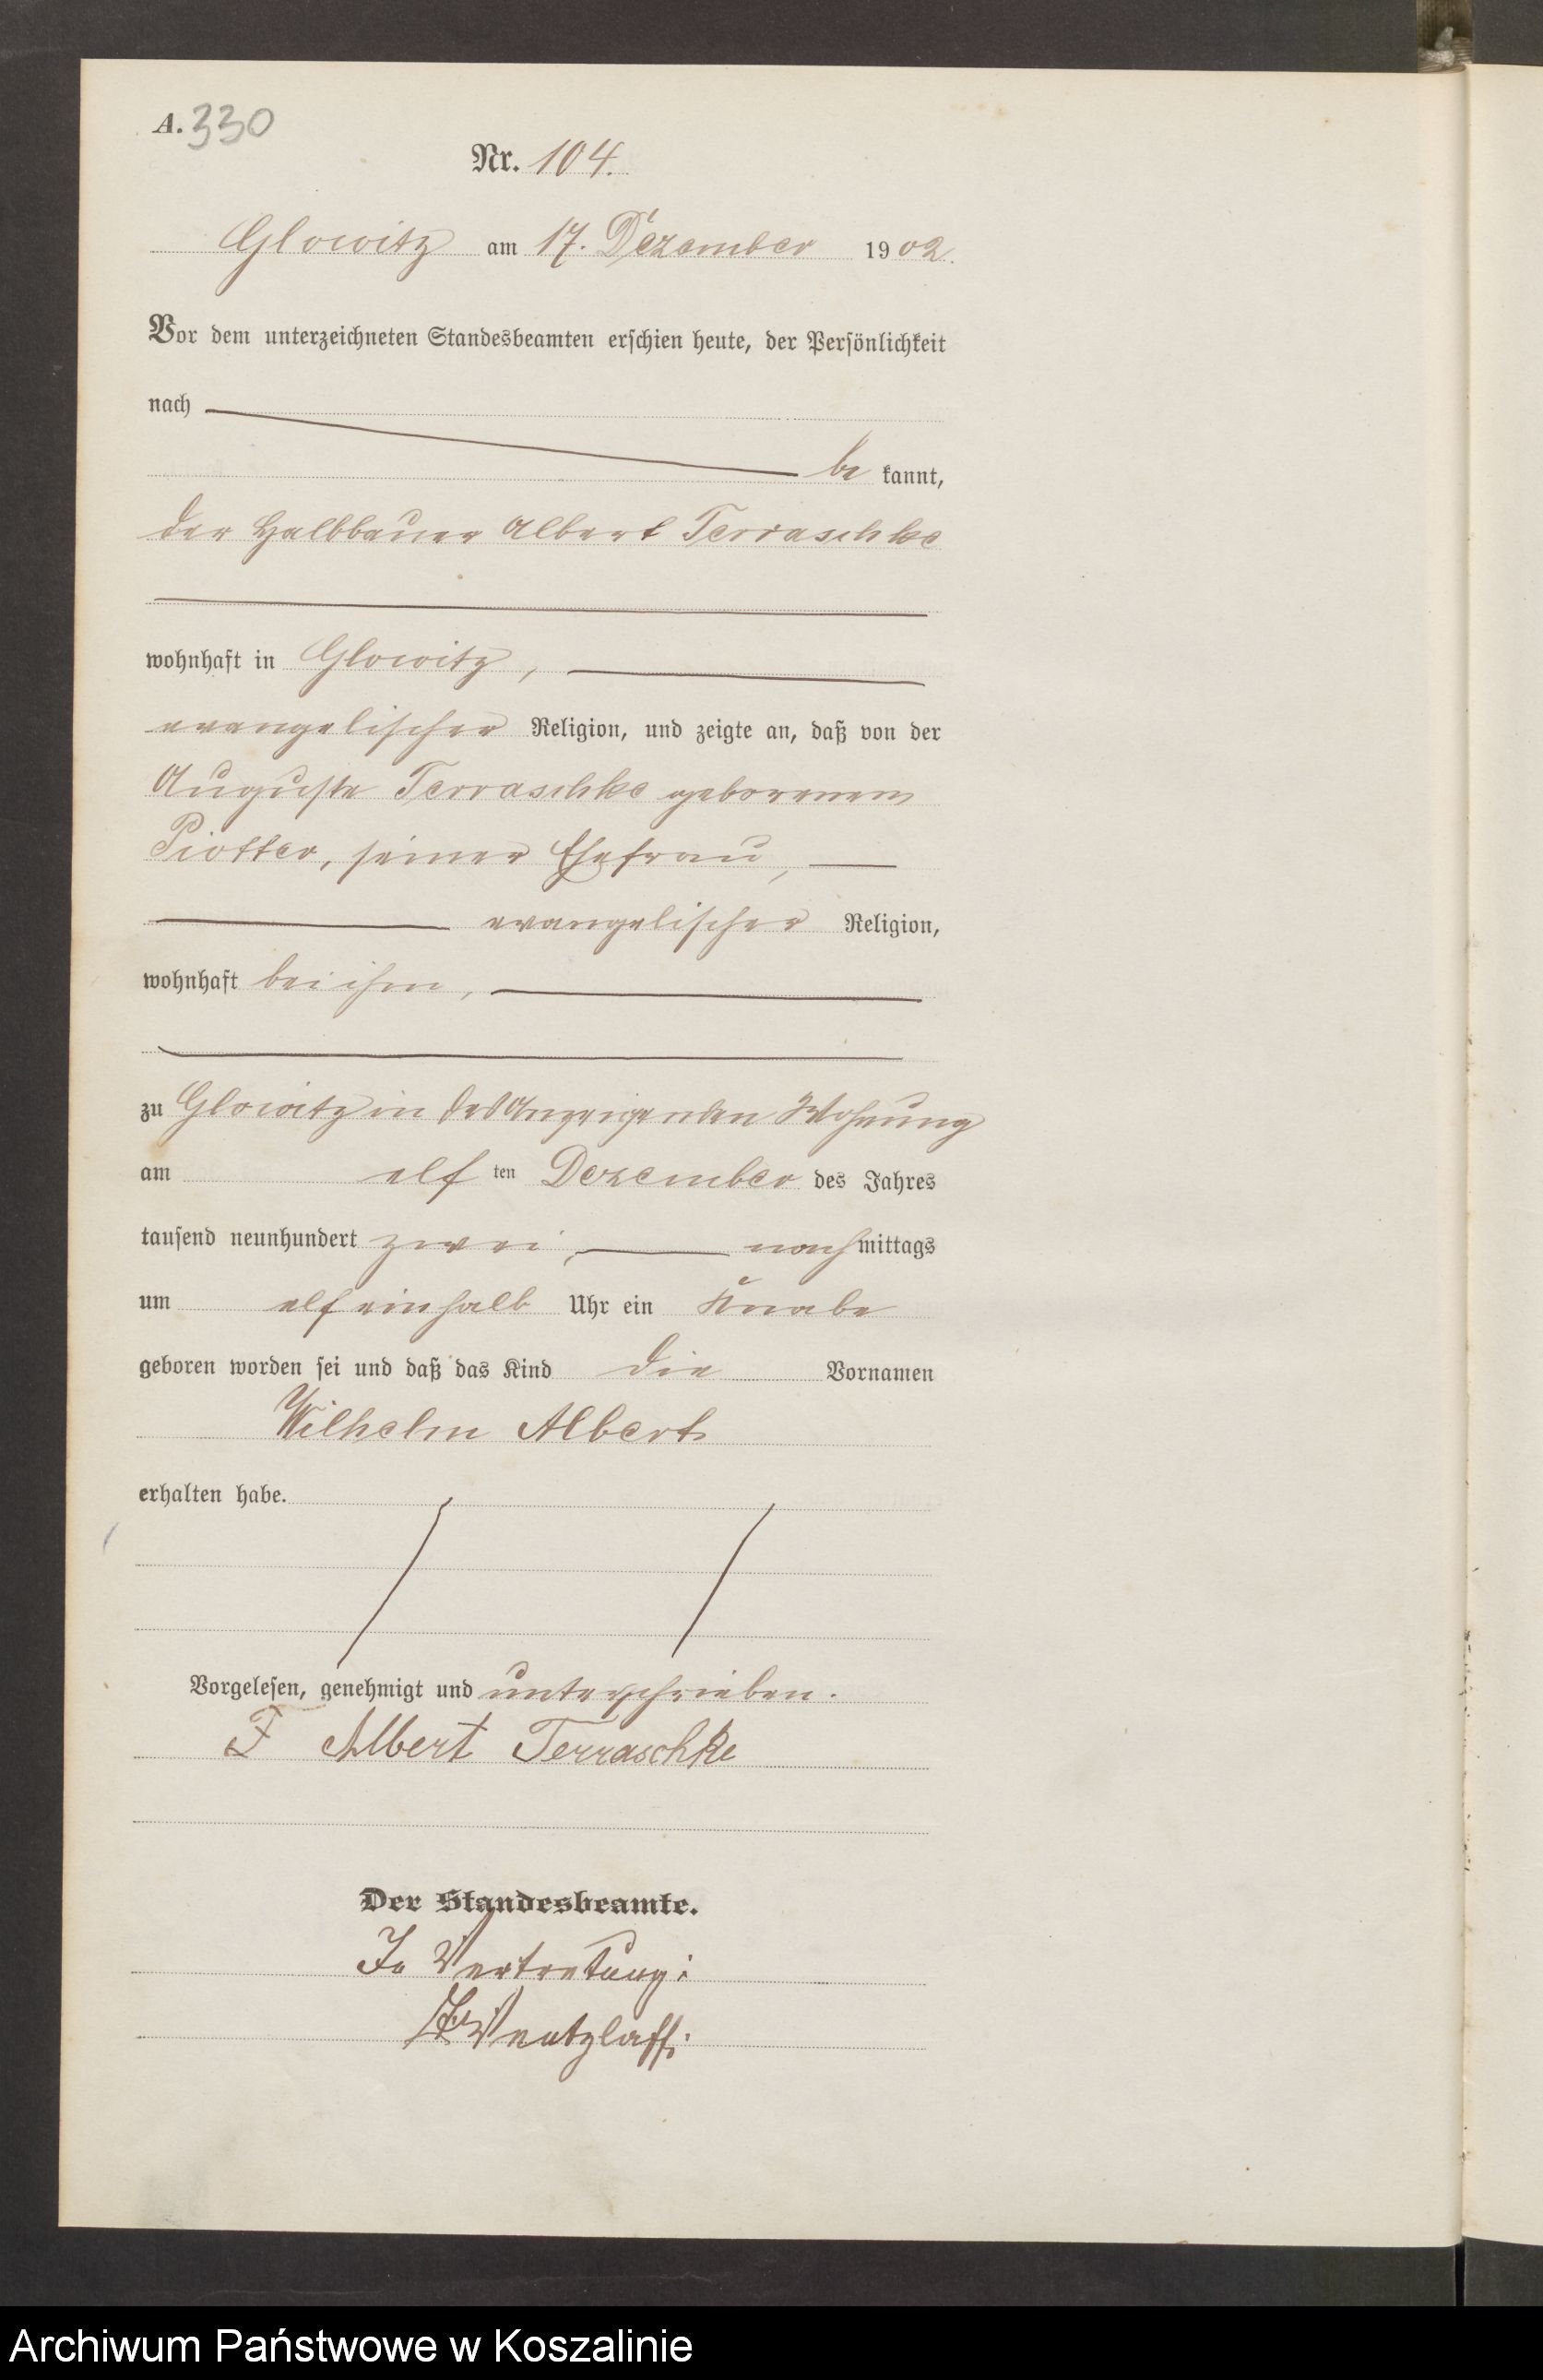 A. 330
Nr. 104.
Glowitz am 17. Dezember 1902.
Vor dem unterzeichneten Standesbeamten erschien heute, der Persönlichkeit
nach
be kannt,
der Halbbauer Albert Terraschke
wohnhaft in Glowitz,
evangelischer Religion, und zeigte an, daß von der
Auguste Terraschke geborenen
Piotter, seiner Ehefrau,
evangelischer Religion,
wohnhaft bei ihm,
zu Glowitz in des Anzeigenden Wohnung
am elf ten Dezember des Jahres
tausend neunhundert zwei, nachmittags
um elf einhalb Uhr ein Knabe
geboren worden sei und daß das Kind die Vornamen
Wilhelm Albert
erhalten habe.
Vorgelesen, genehmigt und unterschrieben.
F Albert Terraschke
Der Standesbeamte.
In Vertretung:
Wentzlaff.
Archiwum Państwowe w Koszalinie